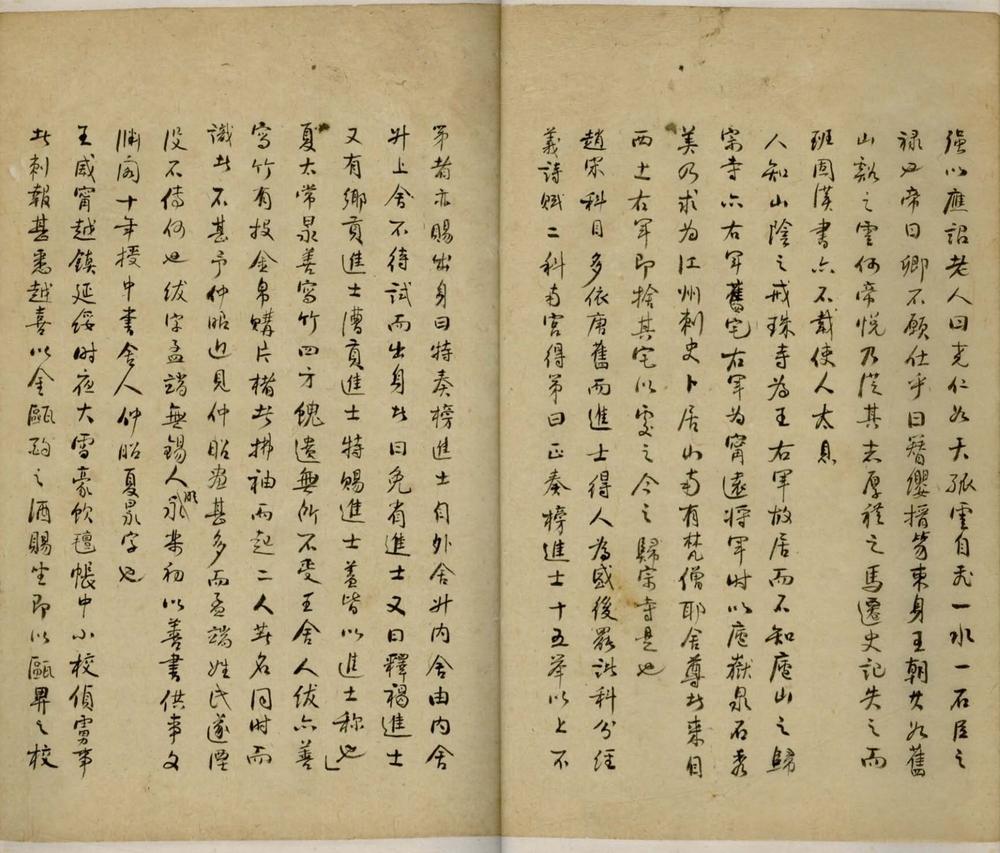 強以應詔老人曰堯仁如天孤雲自飛一水一石臣之
祿也帝曰卿不願仕乎曰簪纓搢笏束身王朝甘如舊
山谿之雲何帝悅乃從其志厚禮之馬遷史記失之而
班固漢書亦不載使人太息
人知山陰之戒珠寺為王右軍故居而不知廬山之歸
宗寺亦右軍舊宅右軍為甯遠將軍時以廬嶽泉石秀
美乃求為江州刺史卜居山南有梵僧耶舍尊者來自
西土右軍即捨其宅以處之今之歸宗寺是也
趙宋科目多依唐舊而進士得人為盛後罷諸科分經
義詩賦二科南宮得第曰正奏榜進士十五舉以上不
第者亦賜出身曰特奏榜進士自外舍升內舍由內舍
升上舍不待試而出身者曰免省進士又曰釋褐進士
又有鄉貢進士漕貢進士特賜進士蓋皆以進士称也
夏太常㫤善寫竹四方餽遺無所不受王舍人紱亦善
寫竹有投金帛購片楮者拂袖而起二人者名同時而
識者不甚予仲昭近見仲昭畫甚多而孟端姓氏遂湮
沒不傳何也紱字孟端無錫人明永樂初以善書供事文
淵閣十年授中書舍人仲昭夏㫤字也
王威甯越鎮延綏時夜大雪豪飲氊帳中小校偵虜事
者刺報甚悉越喜以金甌酌之酒賜坐即以甌畀之校